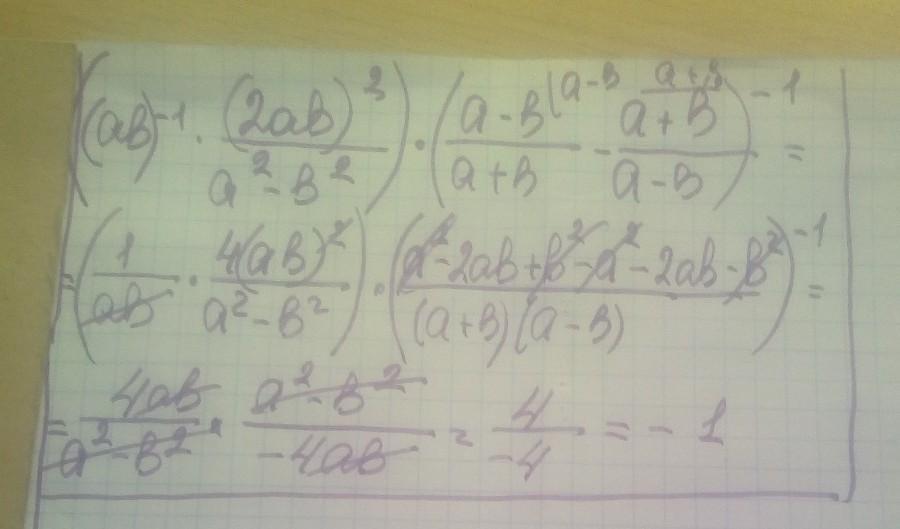 ((ab)^-1 · (2ab)^2 / (a^2 - b^2)) · ((a - b)/(a + b) (a-b - (a + b)/(a - b) a+b)^-1 =
= (1/(ab) · 4(ab)^2 / (a^2 - b^2)) · ((a^2 - 2ab + b^2 - a^2 - 2ab - b^2) / ((a + b)(a - b)))^-1 =
= 4ab / (a^2 - b^2) · (a^2 - b^2) / (-4ab) = 4 / -4 = -1